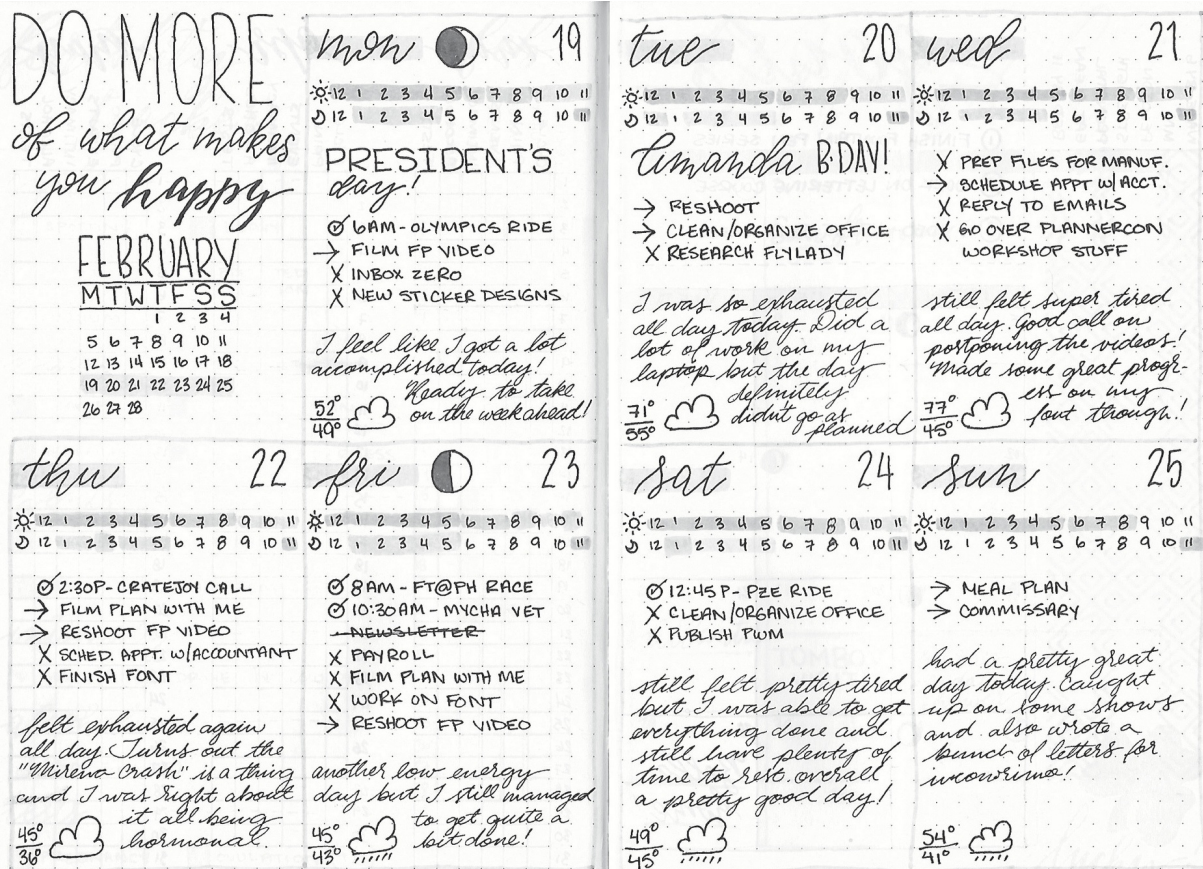 DO MORE
of what makes
you happy
FEBRUARY
M T W T F S S
1 2 3 4
5 6 7 8 9 10 11
12 13 14 15 16 17 18
19 20 21 22 23 24 25
26 27 28
mon 19
12 1 2 3 4 5 6 7 8 9 10 11
12 1 2 3 4 5 6 7 8 9 10 11
PRESIDENT'S
day!
6AM - OLYMPICS RIDE
→ FILM FP VIDEO
X INBOX ZERO
X NEW STICKER DESIGNS
I feel like I got a lot
accomplished today!
Ready to take
on the week ahead!
52°
49°
tue 20
12 1 2 3 4 5 6 7 8 9 10 11
12 1 2 3 4 5 6 7 8 9 10 11
Amanda B-DAY!
→ RESHOOT
→ CLEAN/ORGANIZE OFFICE
X RESEARCH FLYLADY
I was so exhausted
all day today. Did a
lot of work on my
laptop but the day
definitely
didn't go as
planned
71°
55°
wed 21
12 1 2 3 4 5 6 7 8 9 10 11
12 1 2 3 4 5 6 7 8 9 10 11
X PREP FILES FOR MANUF.
→ SCHEDULE APPT W/ACCT.
X REPLY TO EMAILS
X GO OVER PLANNERCON
WORKSHOP STUFF
still felt super tired
all day. Good call on
postponing the videos!
Made some great progr-
ess on my
font through!
77°
45°
thu 22
12 1 2 3 4 5 6 7 8 9 10 11
12 1 2 3 4 5 6 7 8 9 10 11
2:30P - CRATEJOY CALL
→ FILM PLAN WITH ME
→ RESHOOT FP VIDEO
X SCHED. APPT. W/ACCOUNTANT
X FINISH FONT
felt exhausted again
all day. Turns out the
"Mirena Crash" is a thing
and I was right about
it all being
hormonal.
45°
36°
fri 23
12 1 2 3 4 5 6 7 8 9 10 11
12 1 2 3 4 5 6 7 8 9 10 11
8AM - FT@PH RACE
10:30AM - MYCHA VET
NEWSLETTER
X PAYROLL
X FILM PLAN WITH ME
X WORK ON FONT
→ RESHOOT FP VIDEO
another low energy
day but I still managed
to get quite a
bit done!
45°
43°
sat 24
12 1 2 3 4 5 6 7 8 9 10 11
12 1 2 3 4 5 6 7 8 9 10 11
12:45P - PZE RIDE
X CLEAN/ORGANIZE OFFICE
X PUBLISH PWM
still felt pretty tired
but I was able to get
everything done and
still have plenty of
time to rest. overall
a pretty good day!
49°
45°
sun 25
12 1 2 3 4 5 6 7 8 9 10 11
12 1 2 3 4 5 6 7 8 9 10 11
→ MEAL PLAN
→ COMMISSARY
had a pretty great
day today. Caught
up on some shows
and also wrote a
bunch of letters for
incowrimo!
54°
41°